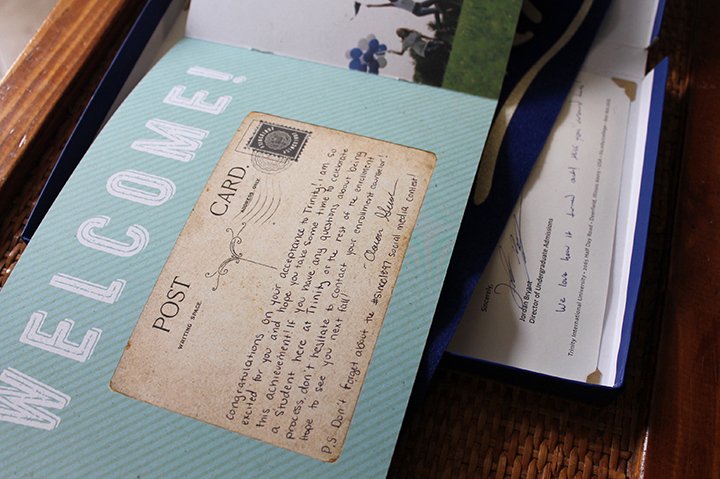 WELCOME!
POST CARD
WRITING SPACE
ADDRESS ONLY
Congratulations on your acceptance to Trinity! I am so
excited for you and hope you take some time to celebrate
this achievement! If you have any questions about being
a student here at Trinity or the rest of the enrollment
process, don't hesitate to contact your enrollment counselor!
Hope to see you next fall!
P.S. Don't forget about the #since1897 social media contest!
We love how it turned out and
Sincerely,
Jordan Bryant
Director of Undergraduate Admissions
Trinity International University • 2065 Half Day Road • Deerfield, Illinois 60015 • USA